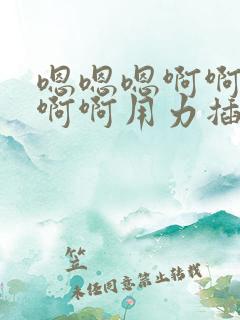 嗯嗯嗯啊啊
啊啊用力插
笠
未经同意禁止转载